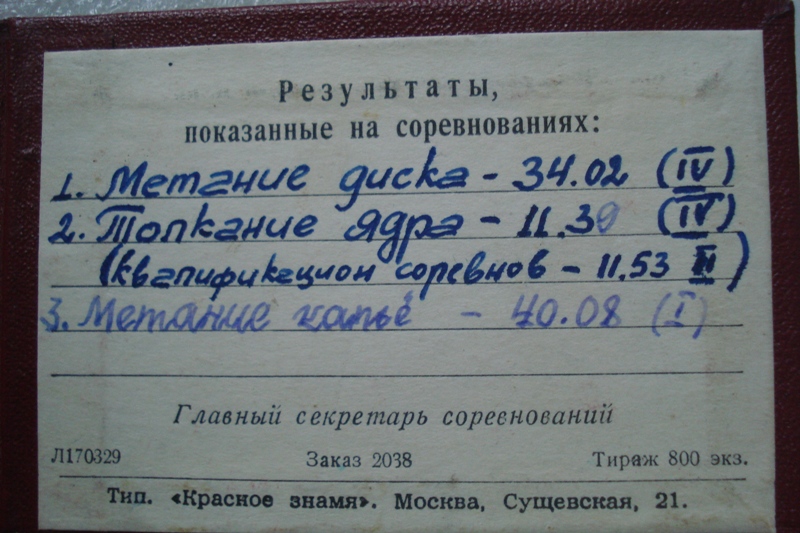 Результаты,
показанные на соревнованиях:
1. Метание диска - 34.02 (IV)
2. Толкание ядра - 11.39 (IV)
(квалификацион соревнов - 11.53 II)
3. Метание копьё - 40.08 (I)
Главный секретарь соревнований
Л170329 Заказ 2038 Тираж 800 экз.
Тип. «Красное знамя». Москва, Сущевская, 21.